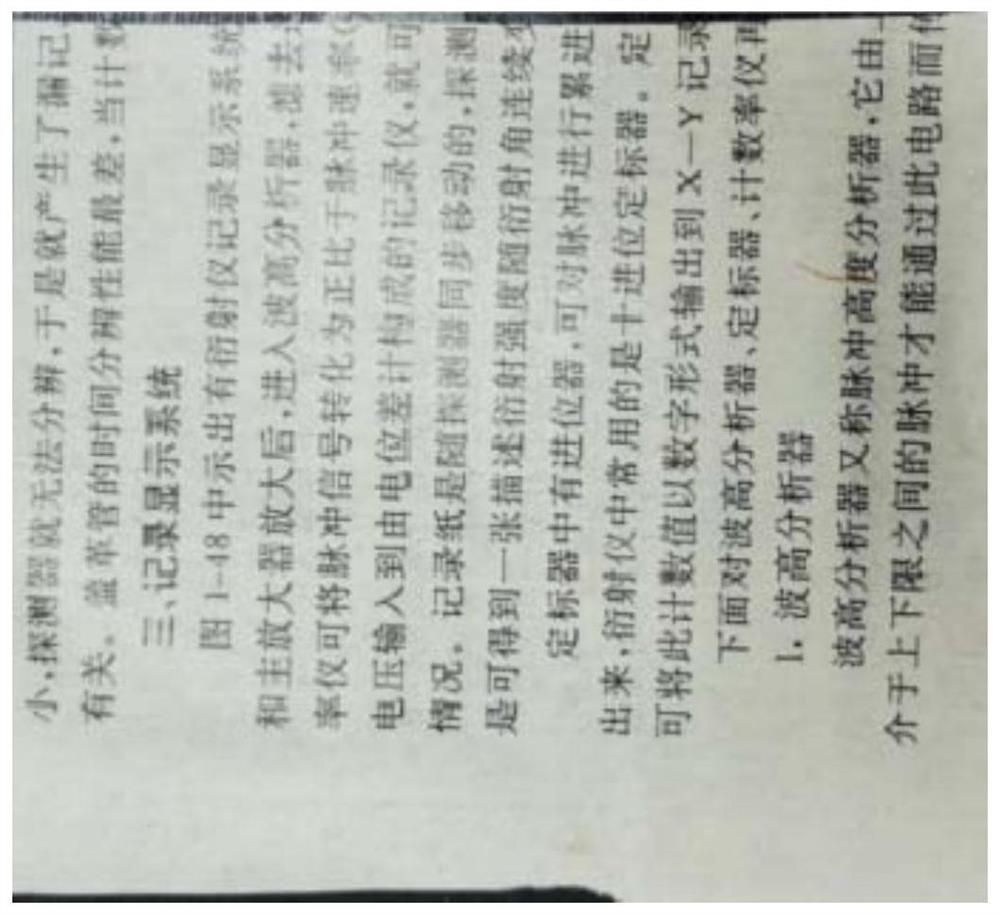 小,探测器就无法分辨,于是就产生了漏记
有关。盖革管的时间分辨性能最差,当计数
三、记录显示系统
图 1-48 中示出有衍射仪记录显示系统
和主放大器放大后,进入波高分析器,滤去
率仪可将脉冲信号转化为正比于脉冲速率(
电压输入到由电位差计构成的记录仪,就可
情况。记录纸是随探测器同步移动的,探测
是可得到一张描述衍射强度随衍射角连续
定标器中有进位器,可对脉冲进行累进
出来,衍射仪中常用的是十进位定标器。定
可将此计数值以数字形式输出到 X-Y 记录
下面对波高分析器、定标器、计数率仪再
1. 波高分析器
波高分析器又称脉冲高度分析器,它由上
介于上下限之间的脉冲才能通过此电路而